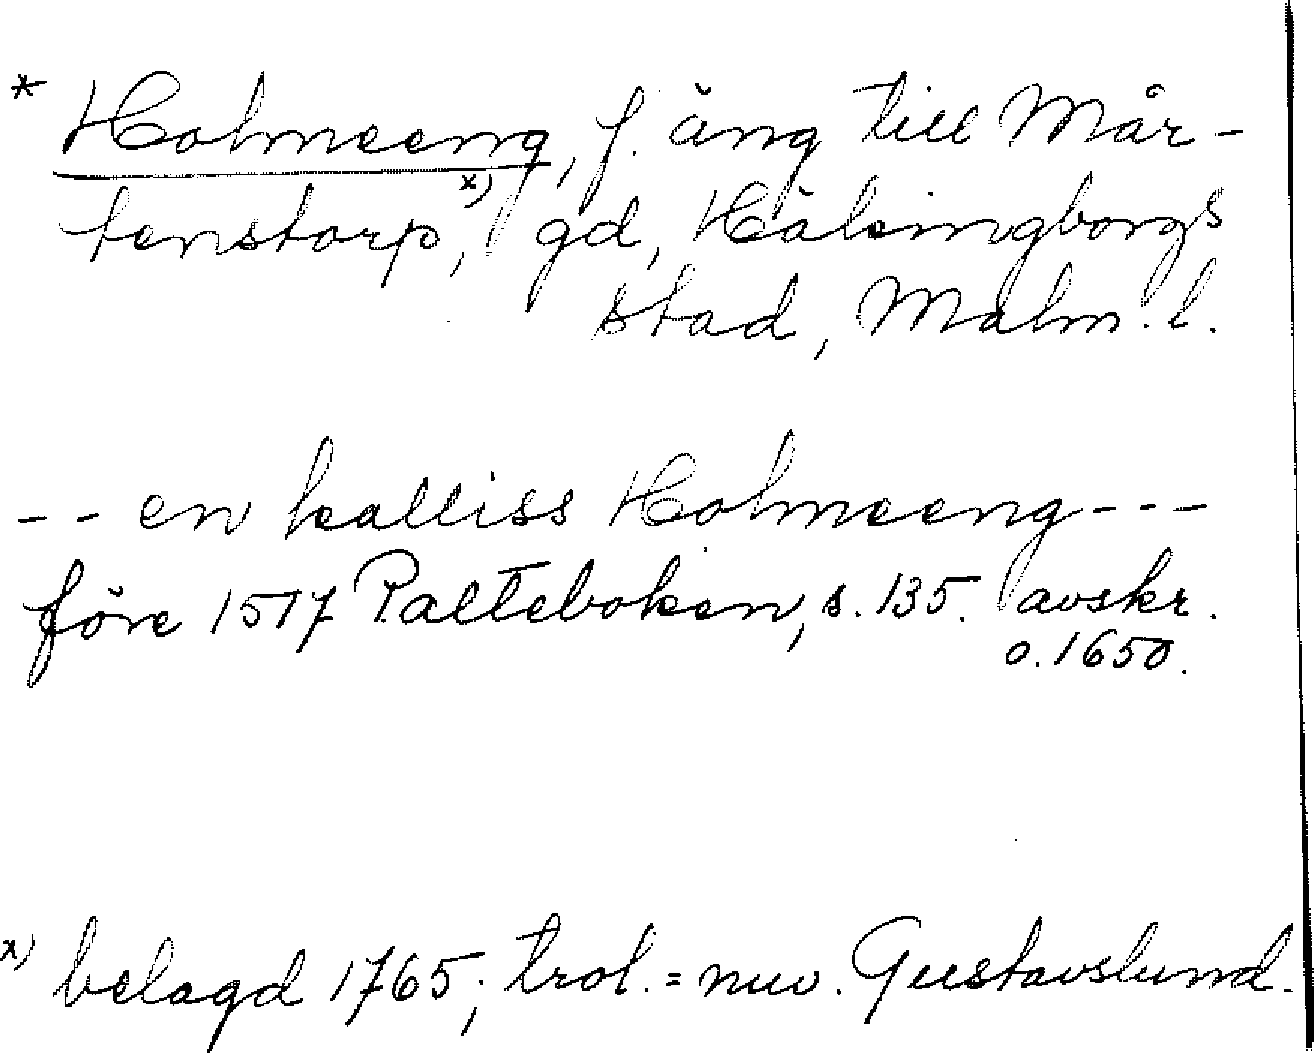 * Holmeeng, f. äng till Mår-
tenstorp,x) gd, Hälsingborgs
stad, Malm. l.
-- en kalliss Holmeeng ---
före 1517 Palteboken, s. 135. avskr.
o. 1650.
x) belagd 1765; trol. = nuv. Gustavslund.